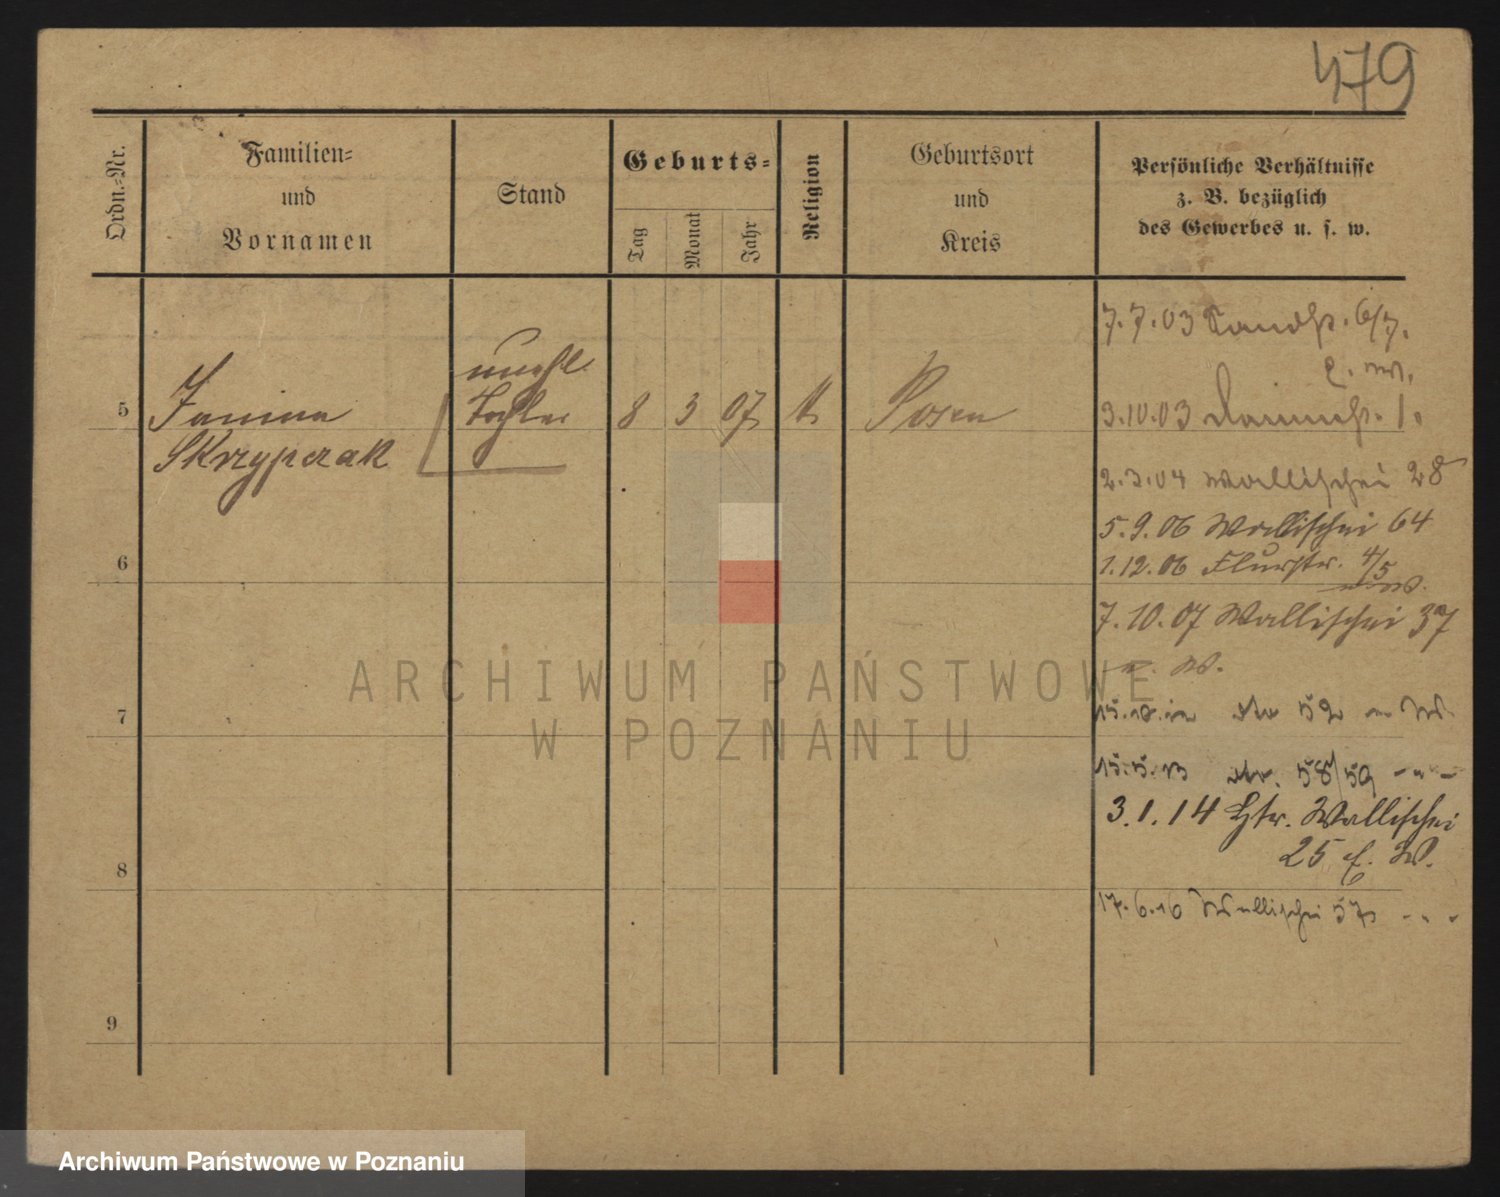 479
Ordn.-Nr.
Familien-
und
Vornamen
Stand
Geburts-
Tag
Monat
Jahr
Religion
Geburtsort
und
Kreis
Persönliche Verhältnisse
z. B. bezüglich
des Gewerbes u. s. w.
5
Janina
Skrzypczak
unehl.
Tochter
8
3
07
k
Posen
6
7
8
9
7.7.03 Sandstr. 6/7.
3.10.03 Dammstr. 1.
2.3.04 Wallischei 28
5.9.06 Wallischei 64
1.12.06 Flurstr. 4/5
7.10.07 Wallischei 37
52
15.5.13 58/59
3.1.14 Htr. Wallischei
25 W.
17.6.16 Wallischei
ARCHIWUM PAŃSTWOWE
W POZNANIU
Archiwum Państwowe w Poznaniu